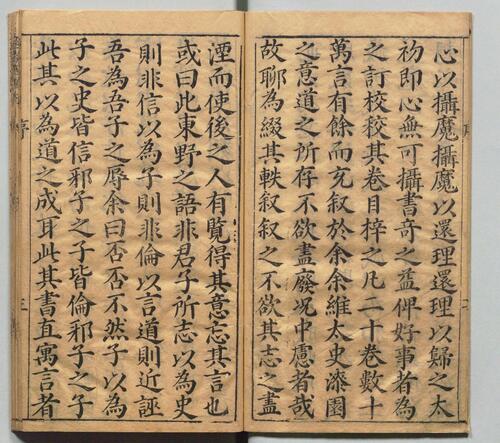 心以攝魔攝魔以還理還理以歸之太
初即心無可攝書奇之益俾好事者為
之訂校挍其卷目梓之凡二十卷數十
萬言有餘而充叙於余余維太史漆園
之意道之所存不欲盡廢况中慮者哉
故聊為綴其軼叙叙之不欲其志之盡
湮而使後之人有覧得其意忘其言也
或曰此東野之語非君子所志以為史
則非信以為子則非倫以言道則近誣
吾為吾子之辱余曰否否不然子以為
子之史皆信邪子之子皆倫邪子之子
此其以為道之成耳此其書直寓言者
序
三